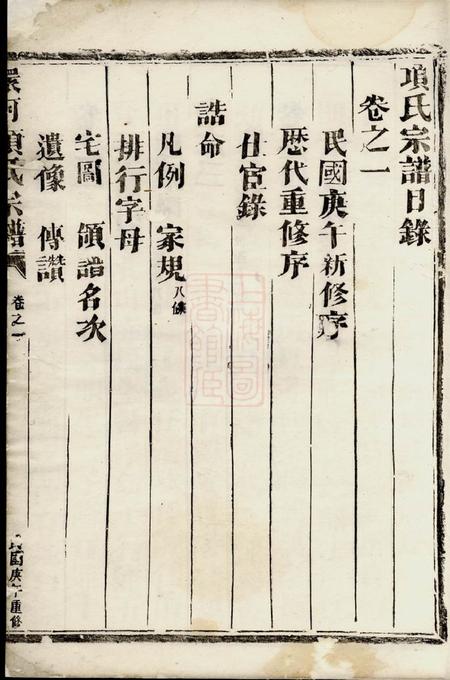 項氏宗譜目錄
卷之一
民國庚午新修序
歷代重修序
仕宦錄
誥命
凡例 家規八條
排行字母
宅圖 領譜名次
遺像 傳讚
項氏宗譜
卷之一
民國庚午重修